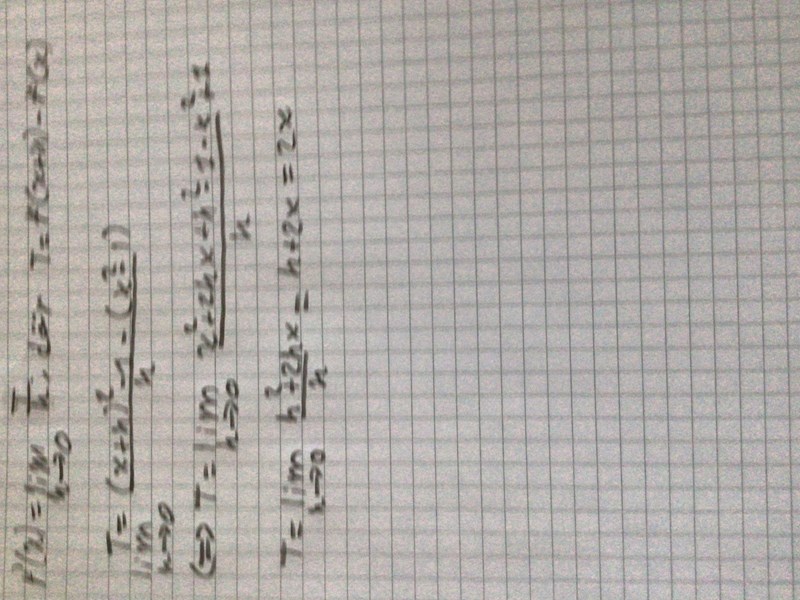 f'(x) = lim h→0 T/h, där T = f(x+h) - f(x)
T = lim h→0 (x+h)² - 1 - (x² - 1) / h
(=) T = lim h→0 x² + 2hx + h² - 1 - x² + 1 / h
T = lim h→0 h² + 2hx / h = h + 2x = 2x